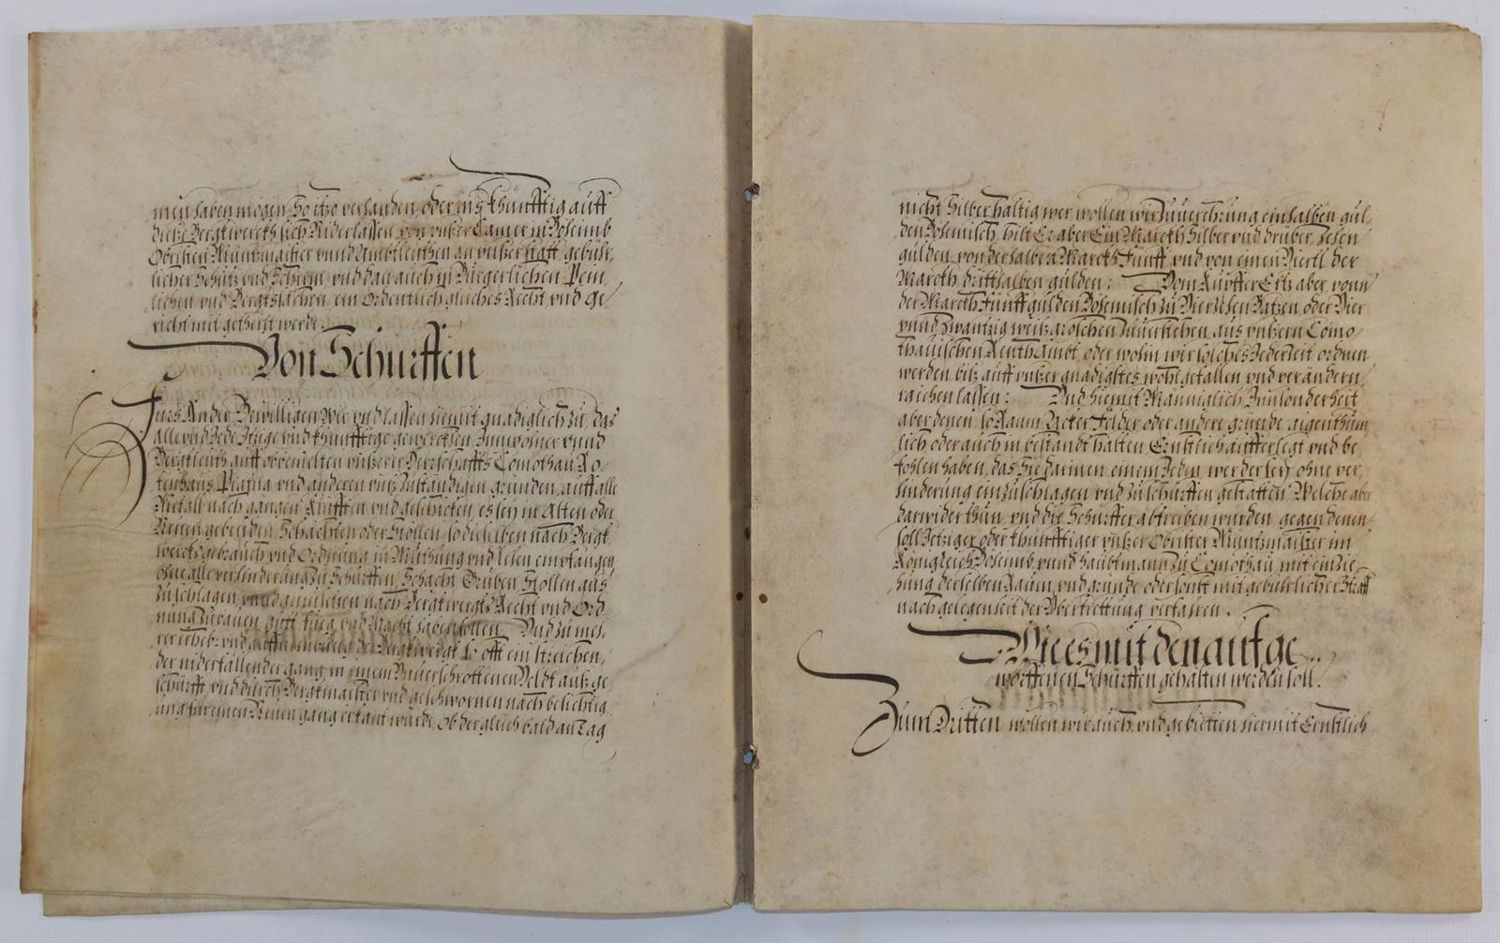 men haben mögen, So itzo verhanden, oder ins khünfftig auff
dieße Bergkwercks sich Niderlassen, von unßer Camer in Behemb
Obristen Müntzmaister unnd Ambtleüthen an unßer statt, gebür,
licher Schutz und Schirm, und dan auch in Bürgerlichen, Pein,
lichen und Bergksachen, ein Ordentlich gleiches Recht und Ge,
richt mit getheilt werde.
Von Schürffen
Fürs Ander Bewilligen wir und lassen hiemit gnädiglich zu, das
alle und Jede Itzige und khünfftige gewercken, Innwohner unnd
Bergkleuth, auff obbemelten unßerer Herrschafft Comothau, Ro,
tenhaus, Platna, und anderen uns zuständigen gründen, auff alle
Metall nach gängen, Klüfften und geschicken, es sey in Alten oder
Neuen gebeuden, Schächten oder Stollen, so dieselben nach Bergk
wercks gebrauch und Ordnung in Muthung und Lehen empfangen,
ohne alle verhinderung zu Schürffen, Schächt, Gruben, Stollen aus
zuschlagen, unnd zu nach Bergkwergks Recht und Ord,
nung zubauen, gutt fueg und Macht haben sollen. Und zu meh,
rer erheb: und des Bergkwergk So offt ein streichen,
der, niderfallender gang, in einem Unverschrottenen Veldt aus ge
schürfft, und durch Bergkmaister und geschwornen nach besichtig,
ung für einen Neuen gang erkant würde, Ob der gleich bald an Tag
nicht Silberhaltig wer, wollen wir Zuverehrung ein halben gül,
den Behemisch, hilt Er aber Ein March Silber und drüber, Zehen
gulden, von der halben March Fünff, und von einen Viertl der
March dritthalben gülden: Vom Kupffer Ertz aber, vonn
der March Fünff gulden Behemisch zu Vierzehen Batzen, oder Vier
unnd zwantzig weiß groschen zuverstehen, aus unßern Como,
thauischen Renth Ambt, oder wohin wir solches Jederzeit ordnen
werden, biß auff unßer gnädigstes wohlgefallen, und verändern,
raichen lassen: Und hiemit Männiglich, Innsonderheit
aber denen, so Raum, Äcker, Felder, oder andere gründe aigenthüm,
lich oder auch in bestandt halten, Ernstlich aufferlegt und be,
fohlen haben, das Sie darinnen einem Jeden, wer der sey, ohne ver,
hinderung einzuschlagen, und zu schürffen gestatten, Welche aber
darwider thun, und die Schürffer abtreiben würden, gegen denen
soll Jetziger oder khünfftiger unßer Obrister Müntzmaister im
Königreich Behemb, unnd haubtmann zu Comothau, mit einzie,
hung derselben Räum, und gründe, oder sonst mit gebürlicher Straff
nach gelegenheit der Übertrettung verfahren.
Wie es mit den auf ge,
worffenen Schürffen gehalten werden soll.
Zum Dritten wollen wir auch, und gebietten hiermit Ernstlich